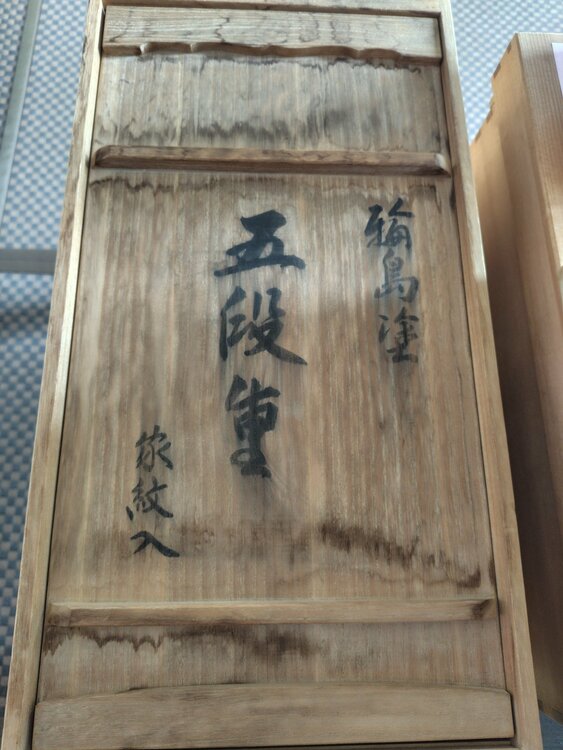 輪島塗
五段重
家紋入